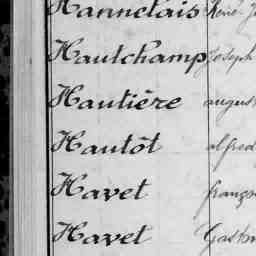 Hannelais René
Hautchamp Joseph
Hautière august
Hautôt alfred
Havet franço
Havet Gaston